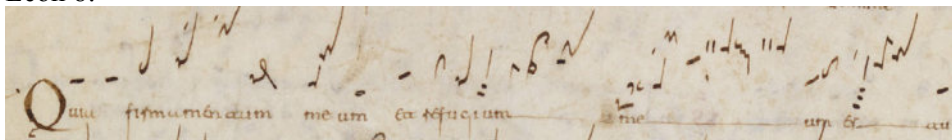 Quia firmamentum me um et refugium me um es tu